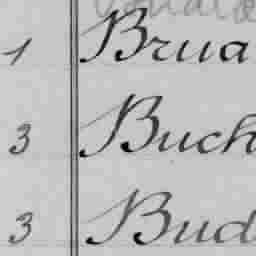 1 Brua
3 Buch
3 Bud